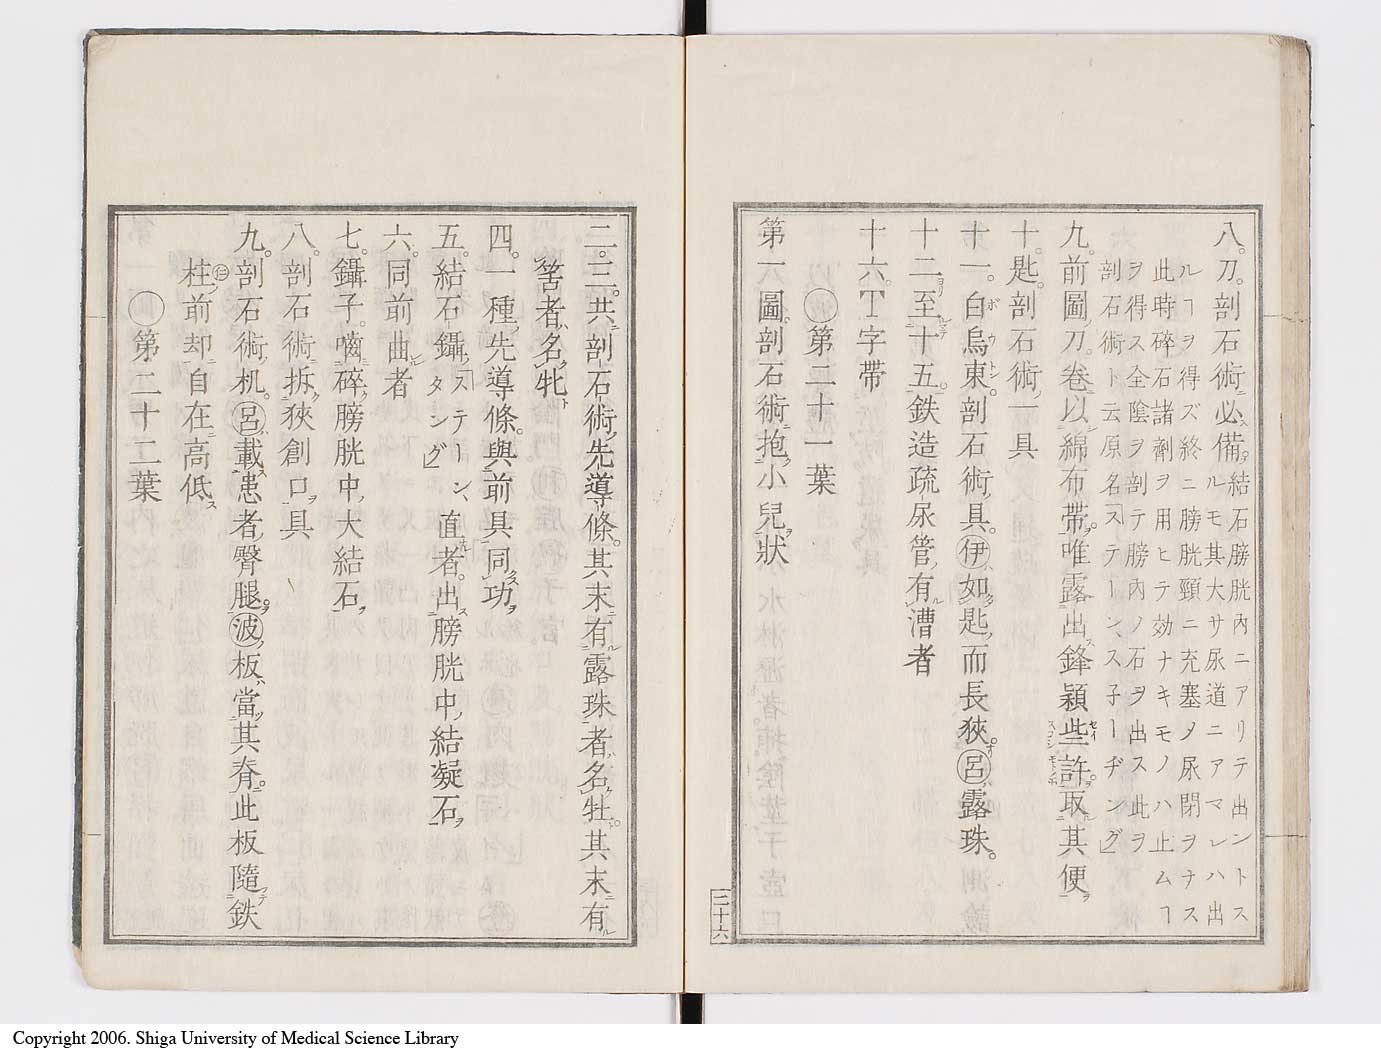 八。刀。剖石術ニ必ス備。結石膀胱內ニアリテ出ントス
ルモ其大サ尿道ニアマレハ出
ルヿヲ得ズ終ニ膀胱頸ニ充塞ノ尿閉ヲナス
此時碎石諸劑ヲ用ヒテ効ナキモノハ止ムヿ
ヲ得ス全陰ヲ剖テ膀內ノ石ヲ出ス此ヲ
剖石術ト云原名「ステーン、ス子ーヂング」
九。前圖ノ刀。卷ニ以シ綿布帶。唯露出ス鋒穎些許。取ル其便ヲ
十。匙。剖石術ノ一具
十一。白烏東。剖石術ノ具。㋑伊ハ如ク匙ノ而長狹。呂ハ露珠。
十二ヨリ至ルマテ十五ニ。鉄造疏尿管。有ル漕者
十六。丁字帶
〇第二十一葉
第一圖。剖石術ニ抱ク小兒ヲ狀
三十六
二。三。共ニ剖石術ノ先導條。其末ニ有ル露珠者ハ名ク牡ト。其末ニ有ル
筈者ハ名ク牝ト
四。一種ノ先導條。與前具同クス功ヲ
五。結石鑷「ステーン、タング」直者。出ス膀胱中ノ結凝石ヲ
六。同前曲者
七。鑷子。嚙ニ碎ク膀胱中ノ大結石ヲ
八。剖石術ニ拆ク狹創口ヲ具
九。剖石術ノ机。呂ハ載ス患者ノ臀腿ヲ。波ノ板ハ當ツ其脊ニ。此板隨テ鉄
柱ノ前却ニ自在ニ高低ス
〇第二十二葉
Copyright 2006. Shiga University of Medical Science Library